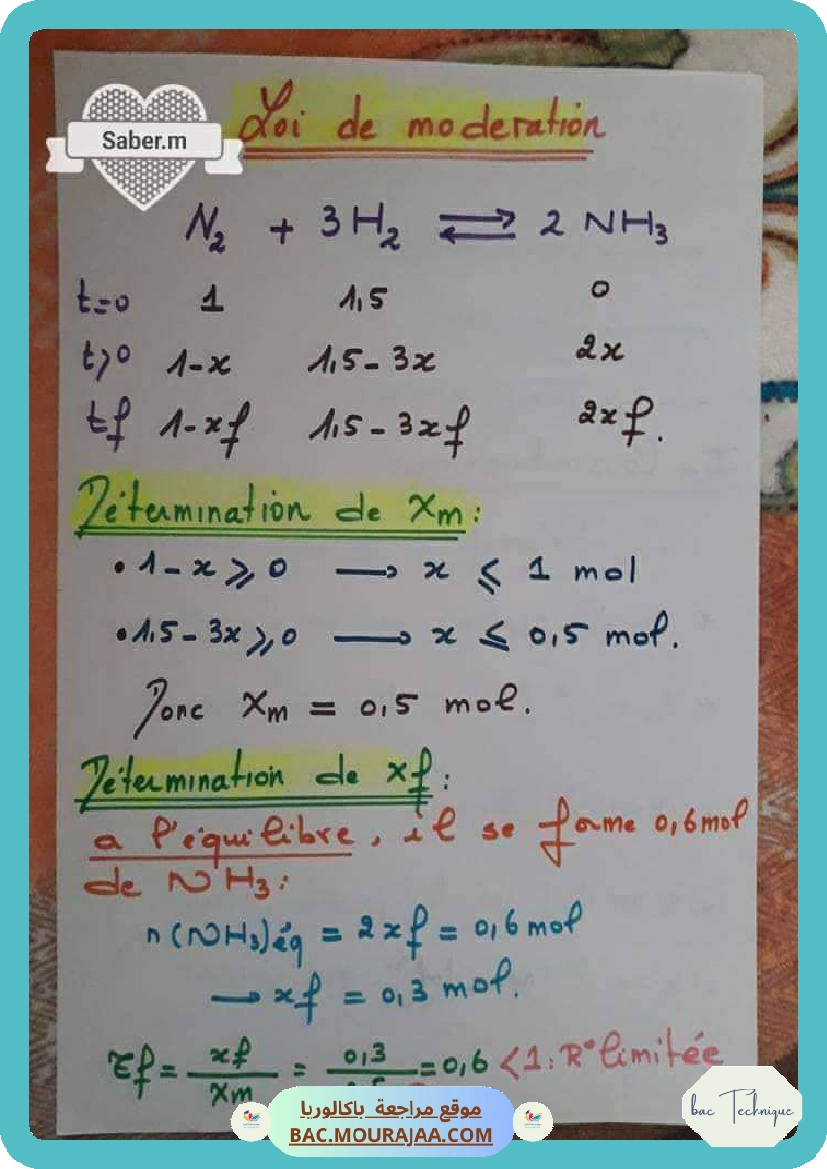 Saber.m
Loi de moderation
N₂ + 3H₂ ⇌ 2 NH₃
t=0 1 1,5 0
t>0 1-x 1,5-3x 2x
tf 1-xf 1,5-3xf 2xf.
Détermination de Xm:
• 1-x ⩾ 0 → x ⩽ 1 mol
• 1,5-3x ⩾ 0 → x ⩽ 0,5 mol.
Donc Xm = 0,5 mol.
Détermination de xf:
a l'équilibre, il se forme 0,6 mol
de NH₃:
n(NH₃)éq = 2xf = 0,6 mol
→ xf = 0,3 mol.
τf = xf/Xm = 0,3/ = 0,6 < 1: R° limitée
bac Technique
موقع مراجعة باكالوريا
BAC.MOURAJAA.COM